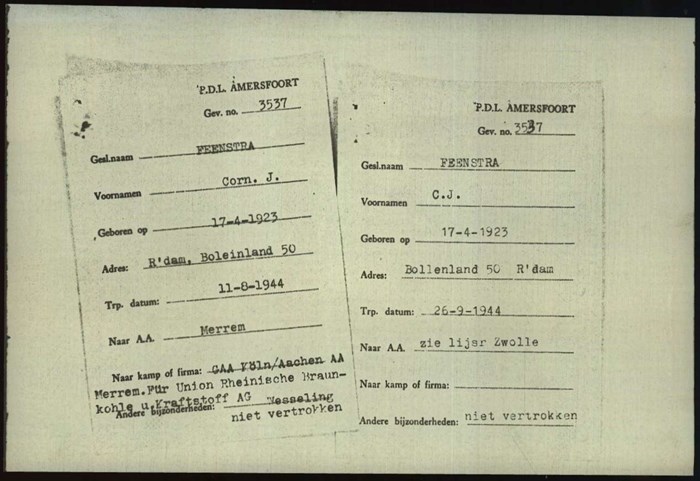 P.D.L. AMERSFOORT
Gev. no. 3537
Gesl.naam FEENSTRA
Voornamen Corn. J.
Geboren op 17-4-1923
Adres: R'dam, Boleinland 50
Trp. datum: 11-8-1944
Naar A.A. Merrem
Naar kamp of firma: GAA Köln/Aachen AA
Merrem.Für Union Rheinische Braun-
kohle u.Kraftstoff AG Wesseling
Andere bijzonderheden:
niet vertrokken
P.D.L. AMERSFOORT
Gev. no. 3537
Gesl.naam FEENSTRA
Voornamen C.J.
Geboren op 17-4-1923
Adres: Bollenland 50 R'dam
Trp. datum: 26-9-1944
Naar A.A. zie lijsr Zwolle
Naar kamp of firma:
Andere bijzonderheden: niet vertrokken